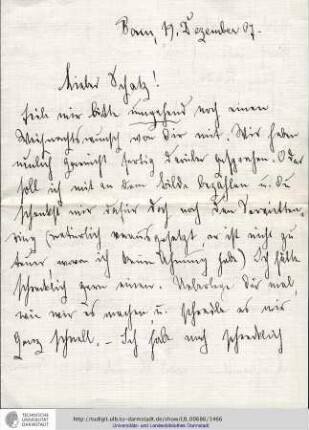 Bonn, 19. Dezember 07.
Lieber Schatz!
Teile mir bitte umgehend noch einen
Weihnachtswunsch von Dir mit. Wir haben
neulich garnicht fertig darüber gesprochen. Oder
soll ich mit an dem Bilde bezahlen u. Du
schenkst mir dafür doch noch den
ring (natürlich vorausgesetzt, er ist nicht zu
teuer, wovon ich keine Ahnung habe) Ich hätte
schrecklich gern einen. Ueberlege Dir mal,
wie wir es machen, u. schreibe es mir
ganz schnell. – Ich habe mich schrecklich
TECHNISCHE UNIVERSITÄT DARMSTADT
http://tudigit.ulb.tu-darmstadt.de/show/LB.00686/1466
Universitäts- und Landesbibliothek Darmstadt